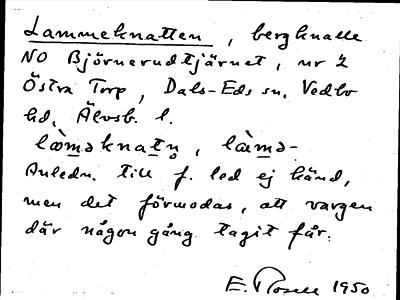 Lammeknatten, bergknalle
NO Björnerudtjärnet, nr 2
Östra Torp, Dals-Eds sn, Vedbo
hd, Älvsb. l.
làmǝknatn̥, làmǝ-
Anledn. till f. led ej känd,
men det förmodas, att vargen
där någon gång tagit får.
E. Rosell 1950